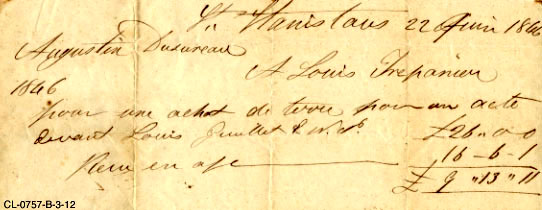 St Stanislaus 22 Juin 1846
Augustin Dusureau
A Louis Trepanier
1846
pour une achat de terre pour un acte
devant Louis Guillet & N.P. £26 " 0 - 0
16 - 6 - 1
£ 9 " 13 " 11
CL-0757-B-3-12